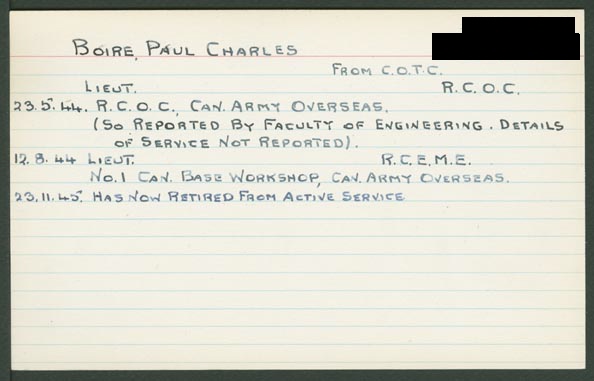 BOIRE, PAUL CHARLES
FROM C.O.T.C.
LIEUT. R.C.O.C.
23.5.44. R.C.O.C., CAN. ARMY OVERSEAS.
(SO REPORTED BY FACULTY OF ENGINEERING. DETAILS
OF SERVICE NOT REPORTED).
12.8.44 LIEUT. R.C.E.M.E.
NO.1 CAN. BASE WORKSHOP, CAN. ARMY OVERSEAS.
23.11.45. HAS NOW RETIRED FROM ACTIVE SERVICE